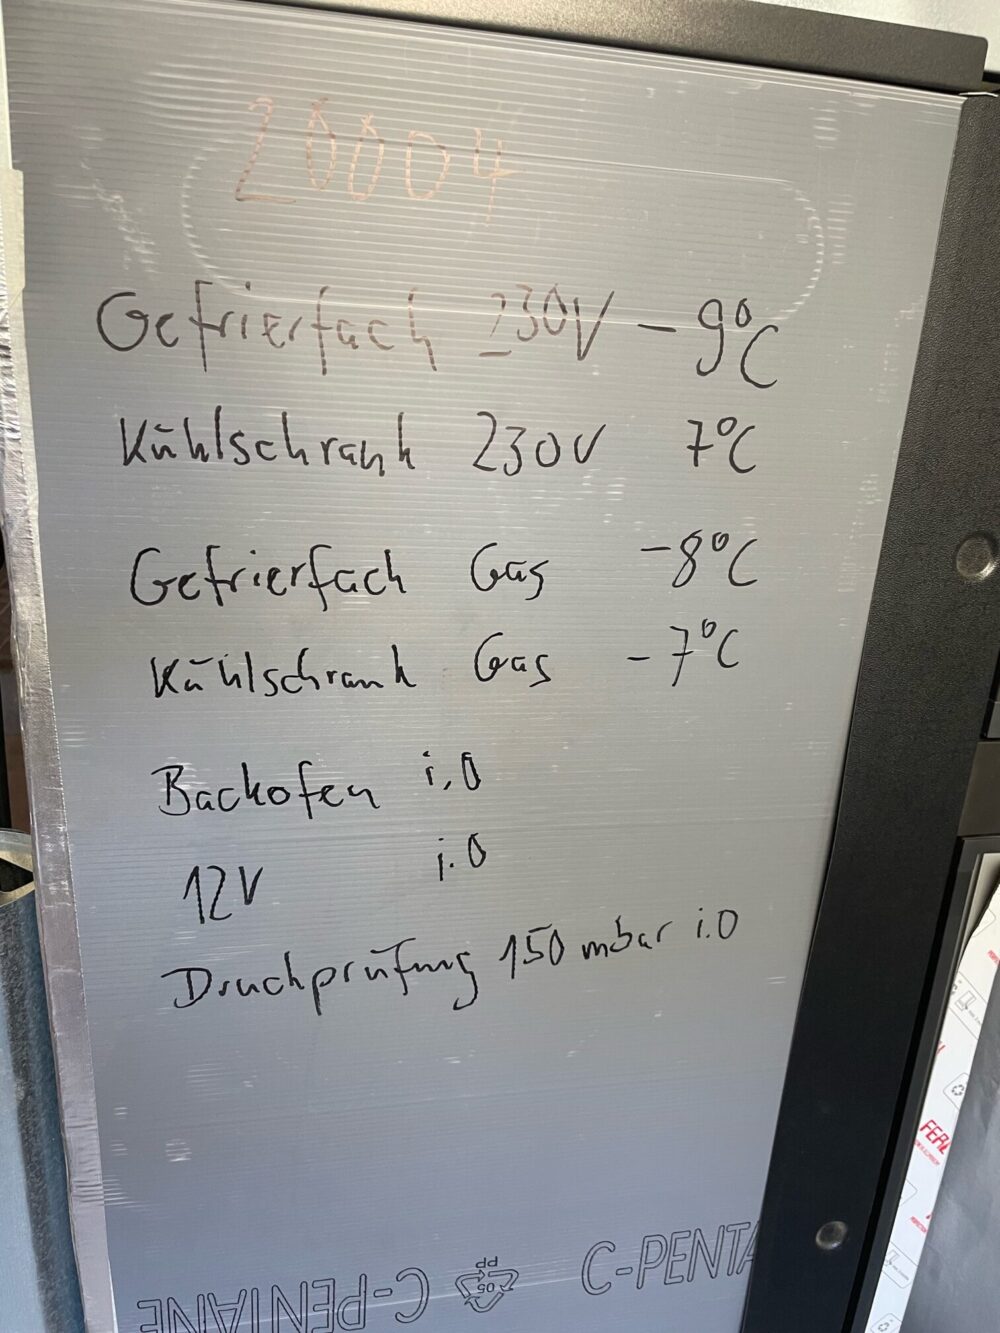 20004
Gefrierfach 230V -9°C
Kühlschrank 230V 7°C
Gefrierfach Gas -8°C
Kühlschrank Gas -7°C
Backofen i.O
12V i.O
Druckprüfung 150 mbar i.O
C-PENTANE
05
PP
C-PENTA
FERL